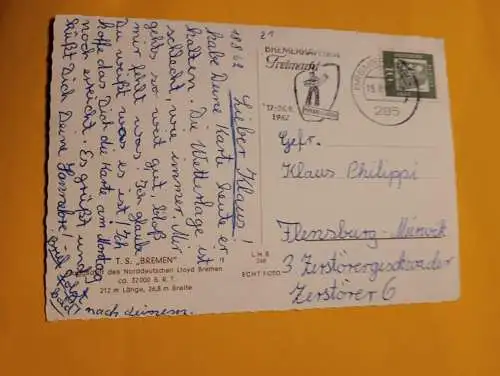 21
18.8.62
Lieber Klaus!
habe Deine Karte heute er-
halten. Die Wetterlage ist
schlecht, wie immer. Mir
gehts so weit gut, bloß
mir fehlt was. Ich glaub
Du weißt was es ist. Ich
hoffe das Dich die Karte am
noch erreicht. Es grüßt und
küßt Dich Deine
bald
nach deinem
T. S. „BREMEN"
des Norddeutschen Lloyd Bremen
ca. 32000 B. R. T.
212 m Länge, 26,8 m Breite
L.H.B.
268
ECHT FOTO
BREMERHAVENER
Freimarkt
1962
285
Gefr.
Klaus Philippi
Flensburg-Mürwik
3 Zerstörergeschwader
Zerstörer 6